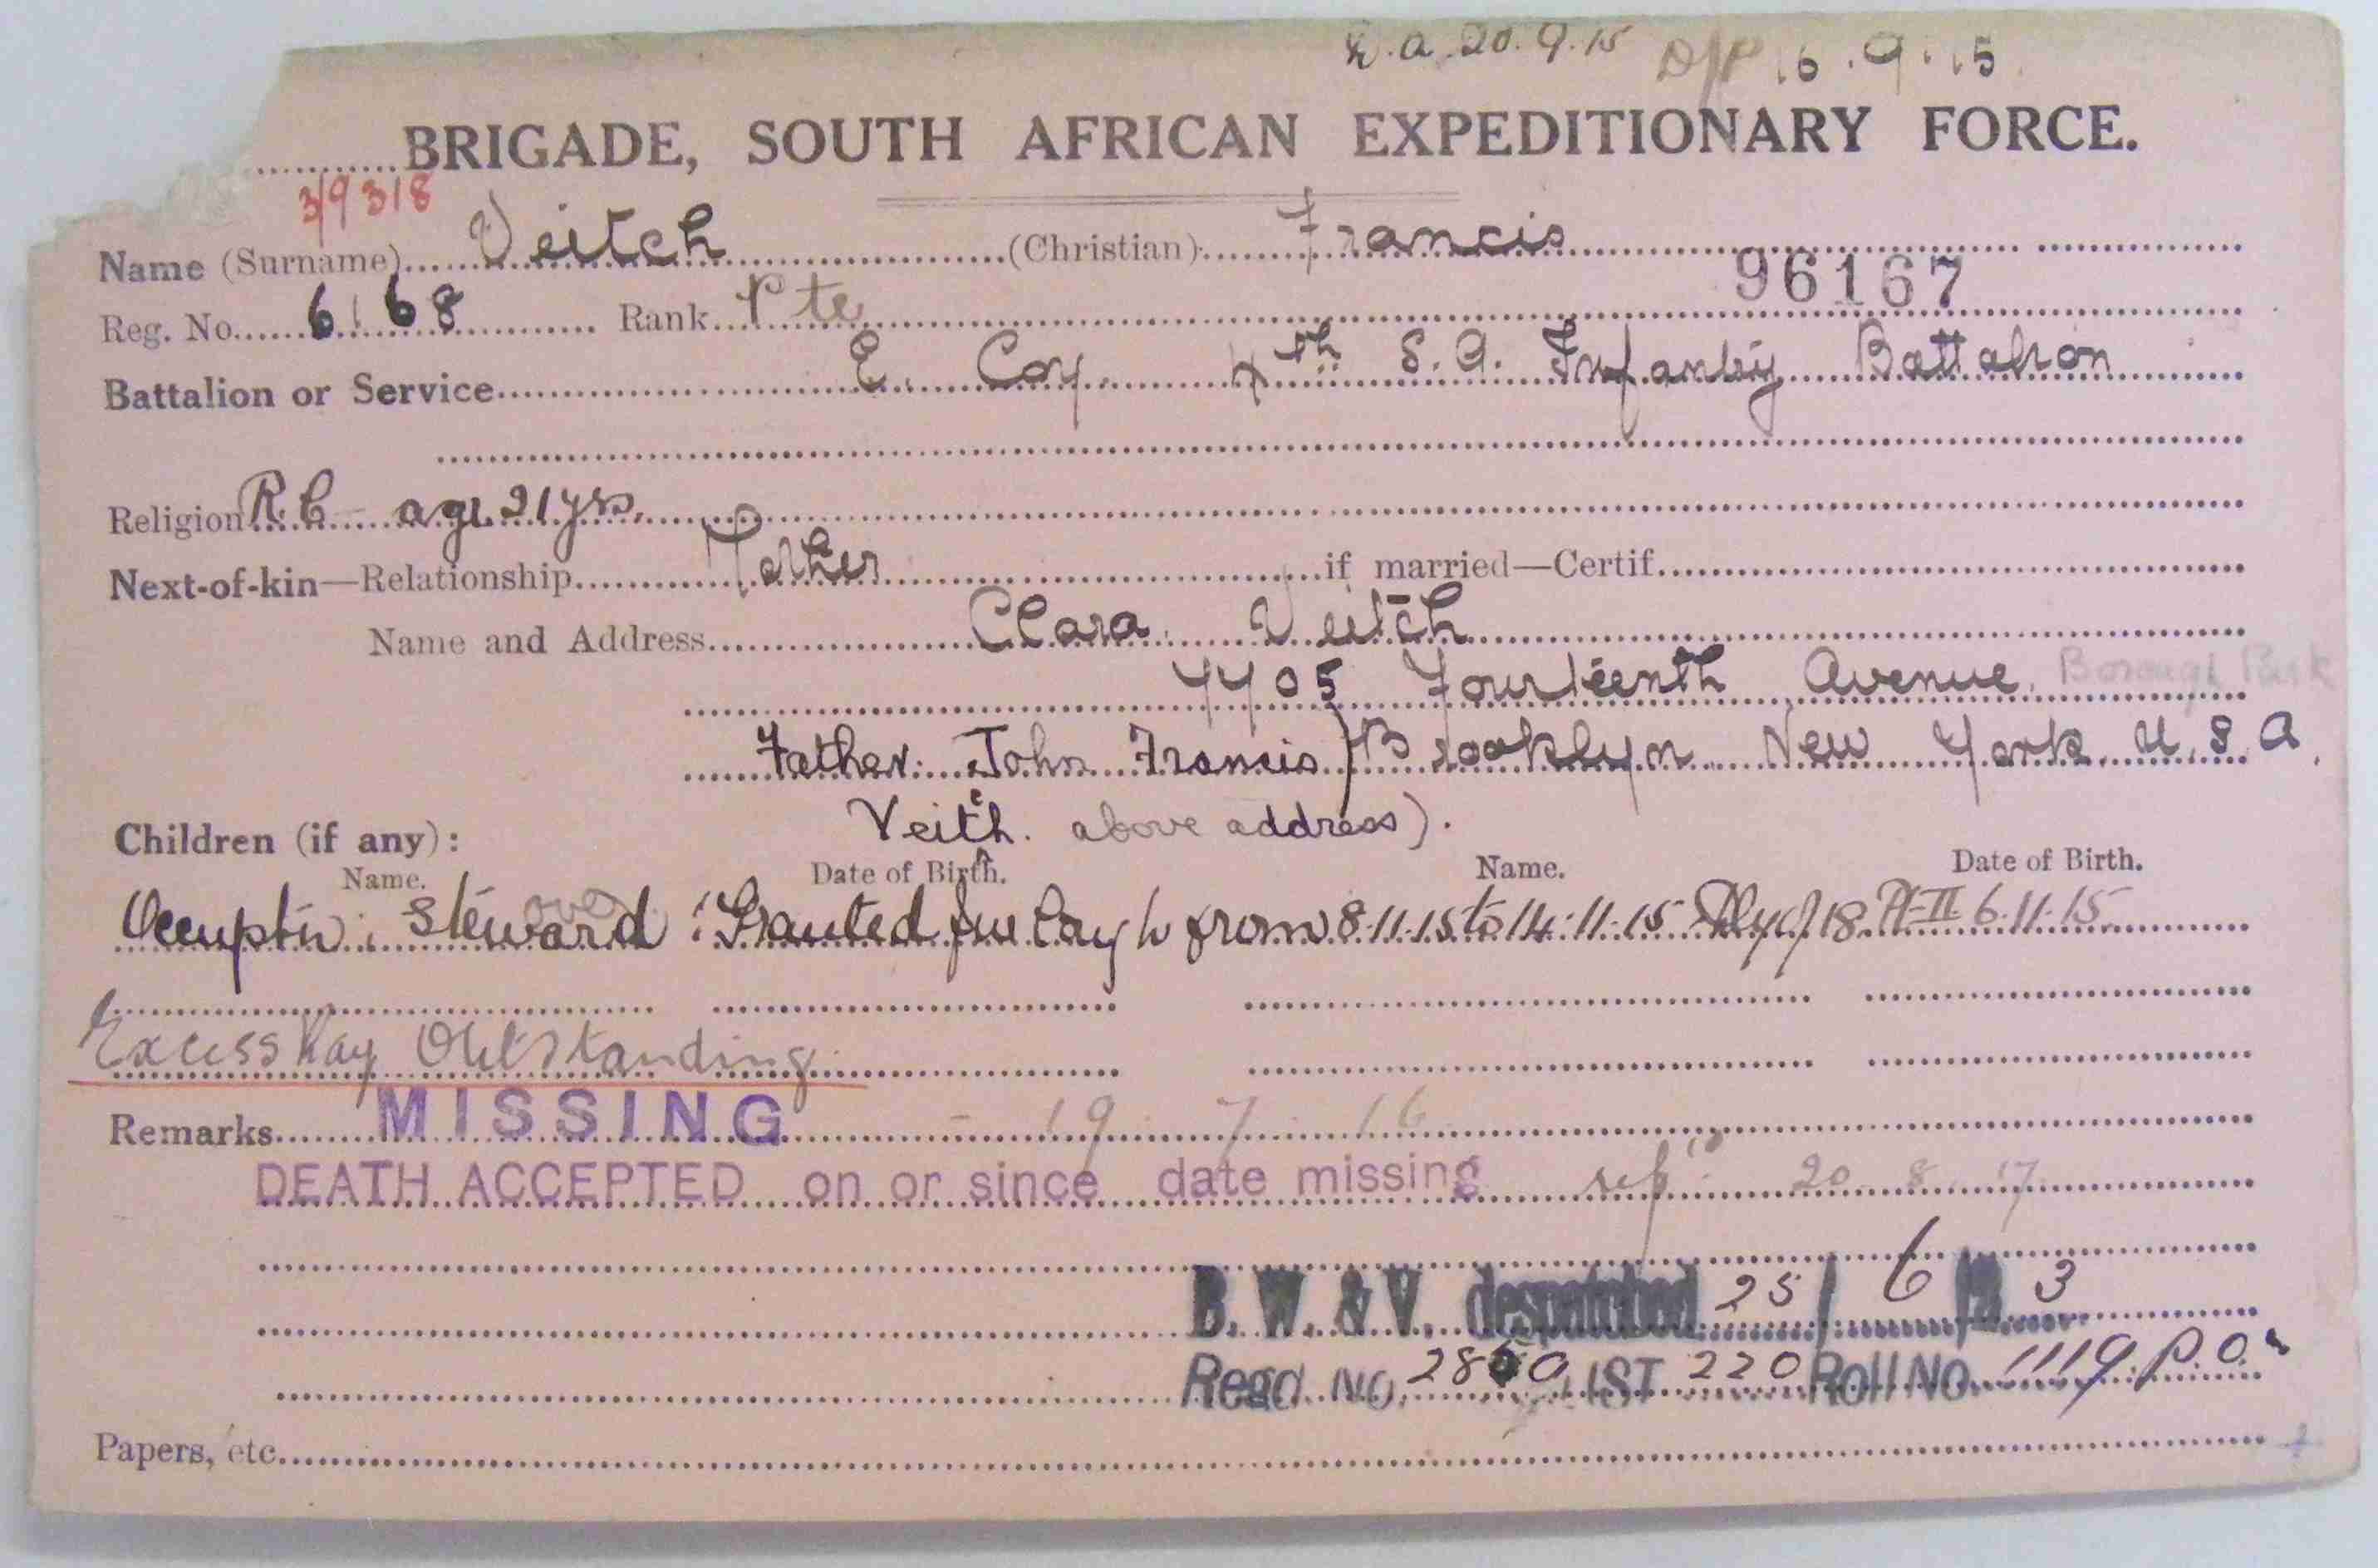 D.A. 20.9.15 D/P 16.9.15
BRIGADE, SOUTH AFRICAN EXPEDITIONARY FORCE.
3/9318
Name (Surname) Veitch (Christian) Francis
96167
Reg. No. 6168 Rank Pte
Battalion or Service E. Coy. 4th S.A. Infantry Battalion
Religion R.C. age 21 yrs.
Next-of-kin—Relationship Mother if married—Certif.
Name and Address Clara Veitch
4405 Fourteenth Avenue. Borough Park
Father: John Francis) Brooklyn New York U.S.A.
Veitch. above address).
Children (if any):
Name. Date of Birth. Name. Date of Birth.
over
Occupt'n: Steward. Granted fur from 8.11.15 to 14.11.15 18 Pt II 6.11.15
Excess Pay Outstanding
Remarks MISSING - 19 7 16
DEATH ACCEPTED on or since date missing rep 20 8 17
B. W. & V. despatched 25/6/23
Regd. No. 2850 LIST 220 Roll No. 1119 P.O.
Papers, etc.